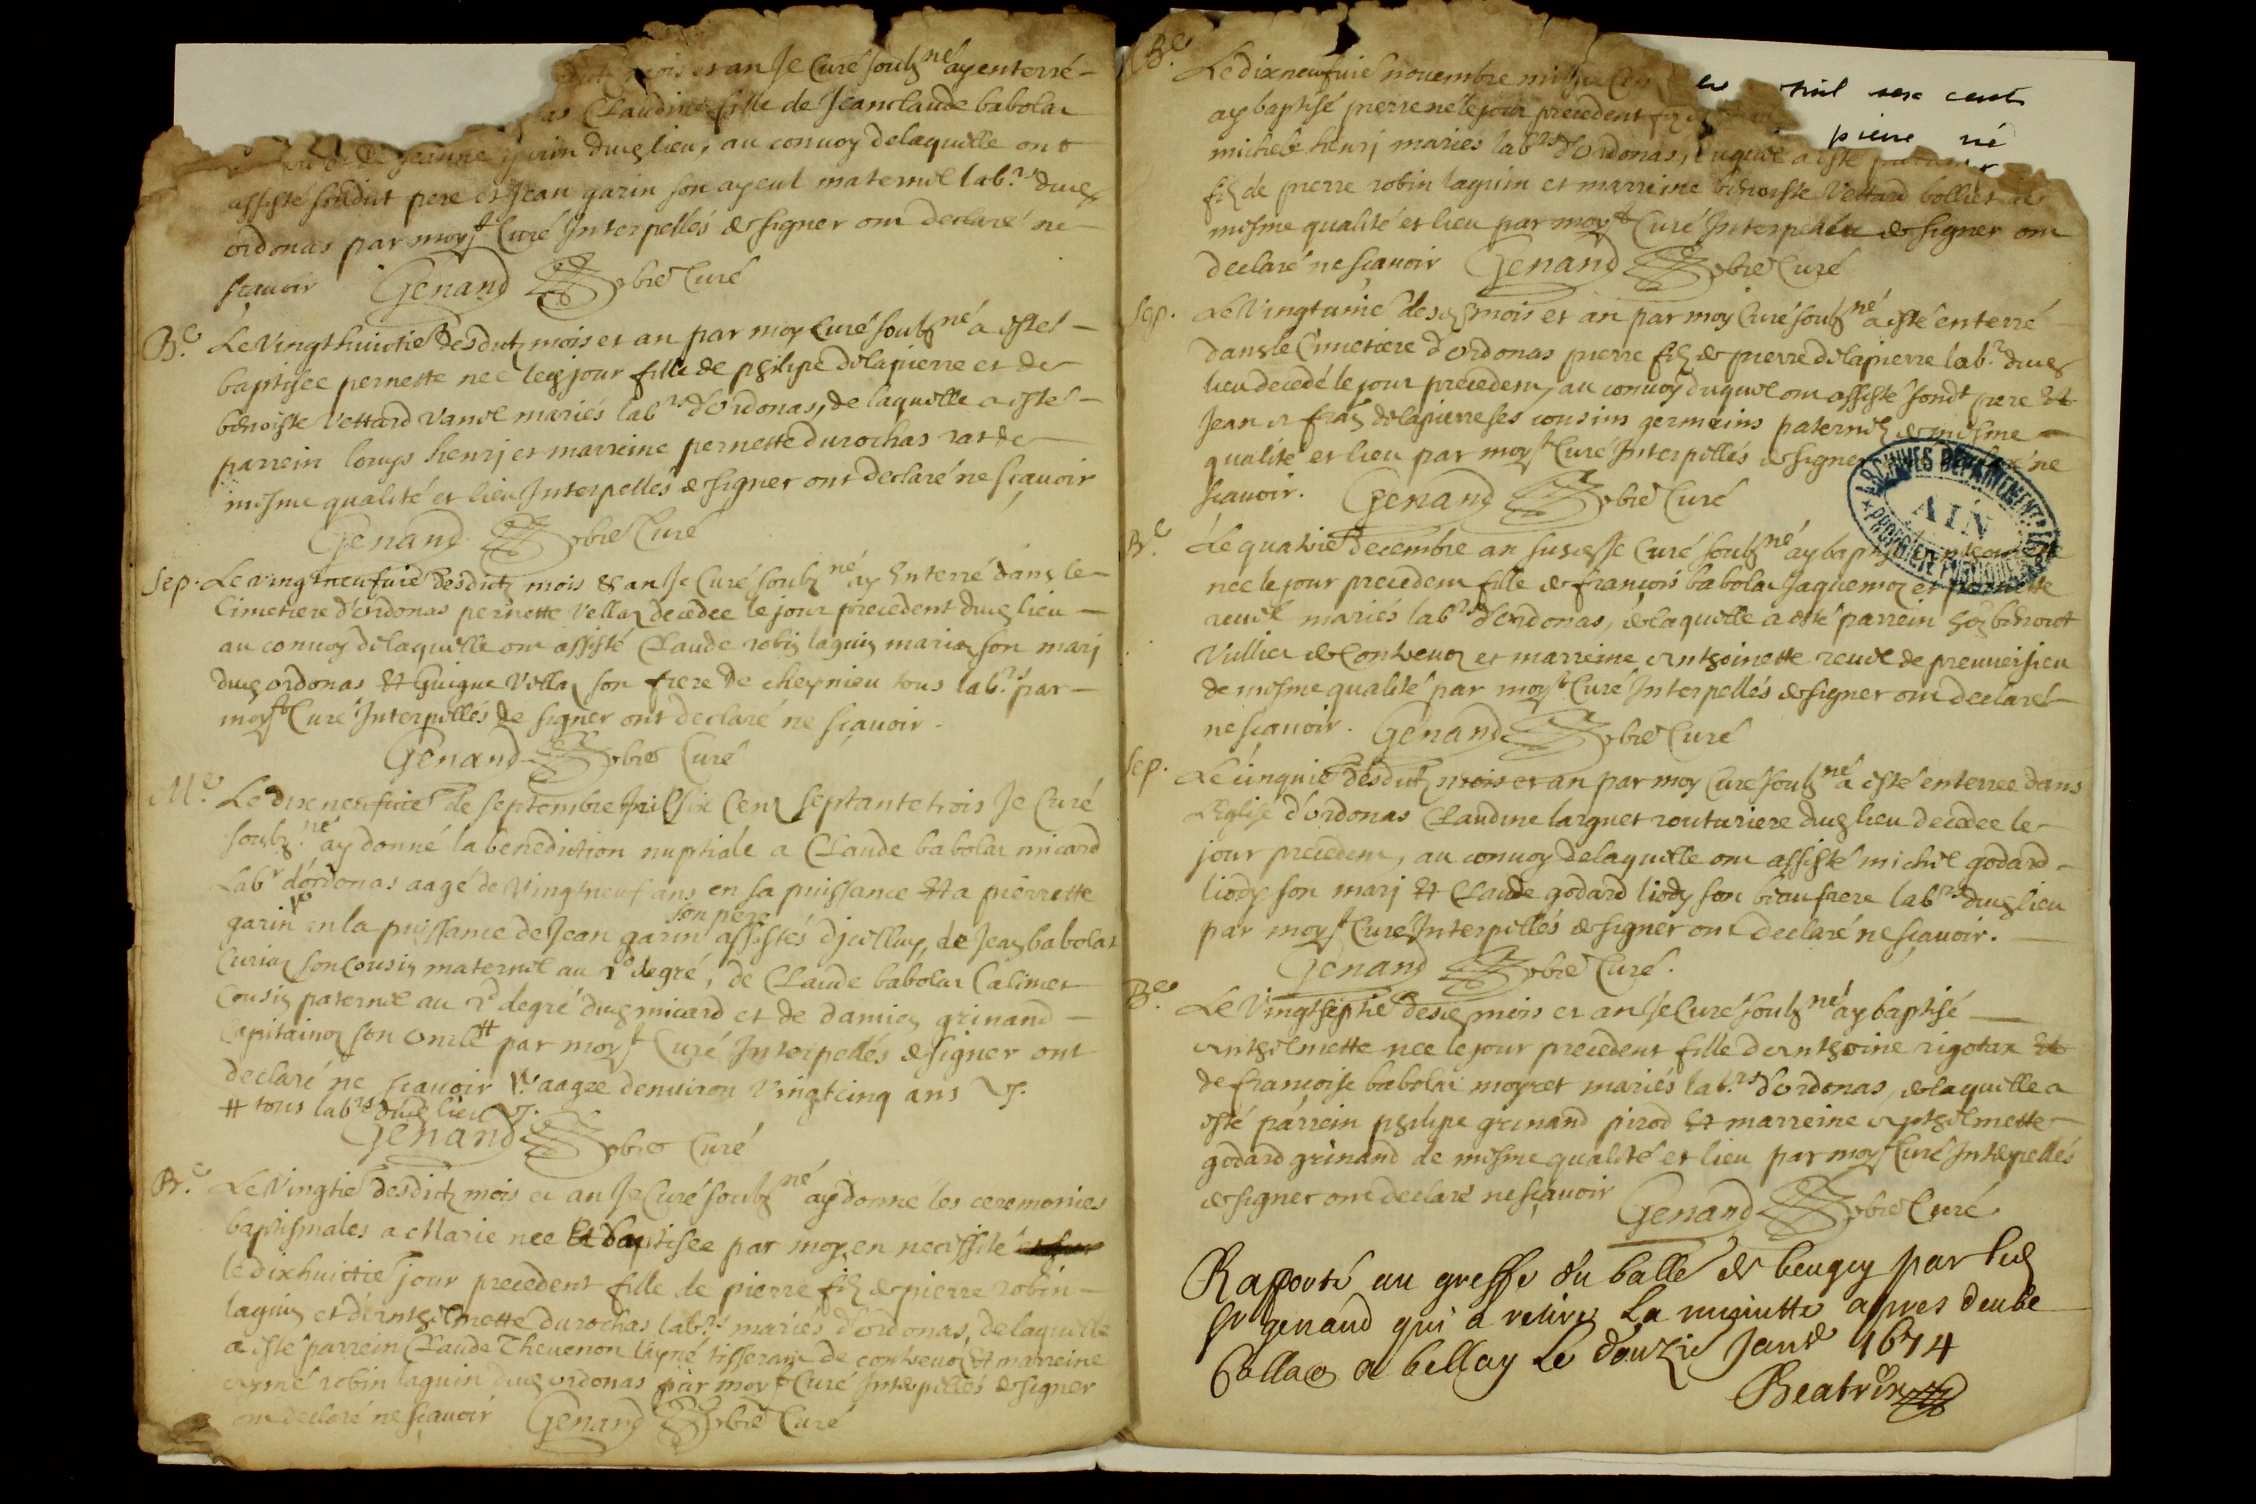 mois et an Je Curé soubz.né ay enterré
Claudine fille de Jeanclaude babolat
de Jeanne garin dud. lieu, au convoy de laquelle ont
assisté sondit pere et Jean garin son ayeul maternel lab.rs dud.
ordonas par moyst Curé Interpellés de signer ont declaré ne
sçavoir Genand pbre Curé
B.e Le Vingthuictie desdits mois et an par moy Curé soubz.né a esté
baptisee pernette nee led. jour fille de philipe delapierre et de
benoiste Vettard Vanel mariés lab.rs d'Ordonas, de laquelle a esté
parrein louys henrj et marreine pernette durochas
mesme qualité et lieu Interpellés de signer ont declaré ne sçavoir
Genand pbre Curé
Sep. Le vingtneufuie desdits mois & an Je Curé soubz.né ay Enterré dans le
Cimetiere d'ordonas pernette Vella decedee le jour precedent dud. lieu
au convoy de laquelle ont assisté Claude robin laguin son marj
dud. ordonas et Guigue Vella son frere de cheynieu tous lab.rs par
moyst Curé Interpellés de signer ont declaré ne sçavoir.
Genand pbre Curé
M.e Le dixneufuie de septembre mil six Cens septantetrois Je Curé
soubz.né ay donné la benediction nuptiale a Claude babolat micard
Lab.r d'ordonas aagé de Vingtneuf ans en sa puissance et a pierrette
garin en la puissance de Jean garin son pere assistés d'icelluy, de Jean babolat
Curian son Cousin maternel au 2d degré, de Claude babolat Calimet
Cousin paternel au 2d degré dud. micard et de damien grinand
Capitainoz son oncle # par moyst Curé Interpellés de signer ont
declaré ne sçavoir aagee d'environ Vingtcinq ans
# tous lab.rs dud. lieu
Genand pbre Curé
B.e Le Vingtie desdits mois et an Je Curé soubz.né ay donné les ceremonies
baptismales a Marie nee Et baptisee par moy en necessité
le dixhuictie jour precedent fille de pierre fils de pierre robin
laguin et d'Anthelmette durochas lab.rs mariés d'ordonas, de laquelle
a esté parrein Claude Thevenon tisserand de contrevoz et marreine
aymé robin laguin dud. ordonas par moyst Curé Interpellés de signer
ont declaré ne sçavoir Genand pbre Curé
B.e Le dixneufuie novembre mil six Cens
es mil six cents
ay baptisé pierre né le jour precedent
pierre né
michele henrj mariés lab.rs d'Ordonas, duquel a esté parrain
fils de pierre robin laguin et marreine benoiste Vettard bolliet de
mesme qualité et lieu par moyst Curé Interpellés de signer ont
declaré ne sçavoir Genand pbre Curé
Sep. Le Vingtunie desd. mois et an par moy Curé soubz.né a esté enterré
dans le Cimetiere d'Ordonas pierre fils de pierre delapierre lab.r dud.
lieu decedé le jour precedent, au convoy duquel ont assisté sondt pere Et
Jean et delapierre ses cousins germains paternels de mesme
qualité et lieu par moyst Curé Interpellés de signer ne
sçavoir. Genand pbre Curé
ARCHIVES DEPARTEMENTALES
AIN
PROPRIETE PUBLIQUE
B.e Le quatrie decembre an susd. Je Curé soubz.né ay baptisé
nee le jour precedent fille de françois babolat Jaquemoz et pernette
revel mariés lab.rs d'Ordonas, de laquelle a esté parrein benoict
Vullier de Contrevoz et marreine Anthoinette revel de premeisieu
de mesme qualité par moyst Curé Interpellés de signer ont declaré
ne sçavoir. Genand pbre Curé
Sep. Le cinquie desdits mois et an par moy Curé soubz.né a esté enterree dans
L'Eglise d'ordonas Claudine larguet routuriere dud. lieu decedee le
jour precedent, au convoy de laquelle ont assisté michel godard
liody son marj et Claude godard liody son beaufrere lab.rs dud. lieu
par moyst Curé Interpellés de signer ont declaré ne sçavoir.
Genand pbre Curé.
B.e Le Vingtseptie desd. mois et an Je Curé soubz.né ay baptisé
Anthelmette nee le jour precedent fille d'Anthoine rigotax Et
de françoise babolat moyret mariés lab.rs d'Ordonas, de laquelle a
esté parrein philipe grinand pirod et marreine Anthelmette
godard grinand de mesme qualité et lieu par moyst Curé Interpellés
de signer ont declaré ne sçavoir Genand pbre Curé
Rapporté au greffe du balle de beugey par led.
Sr genand qui a retiré La minutte apres deube
Colla.on a bellay Le douzie Janv.r 1674
Beatrix